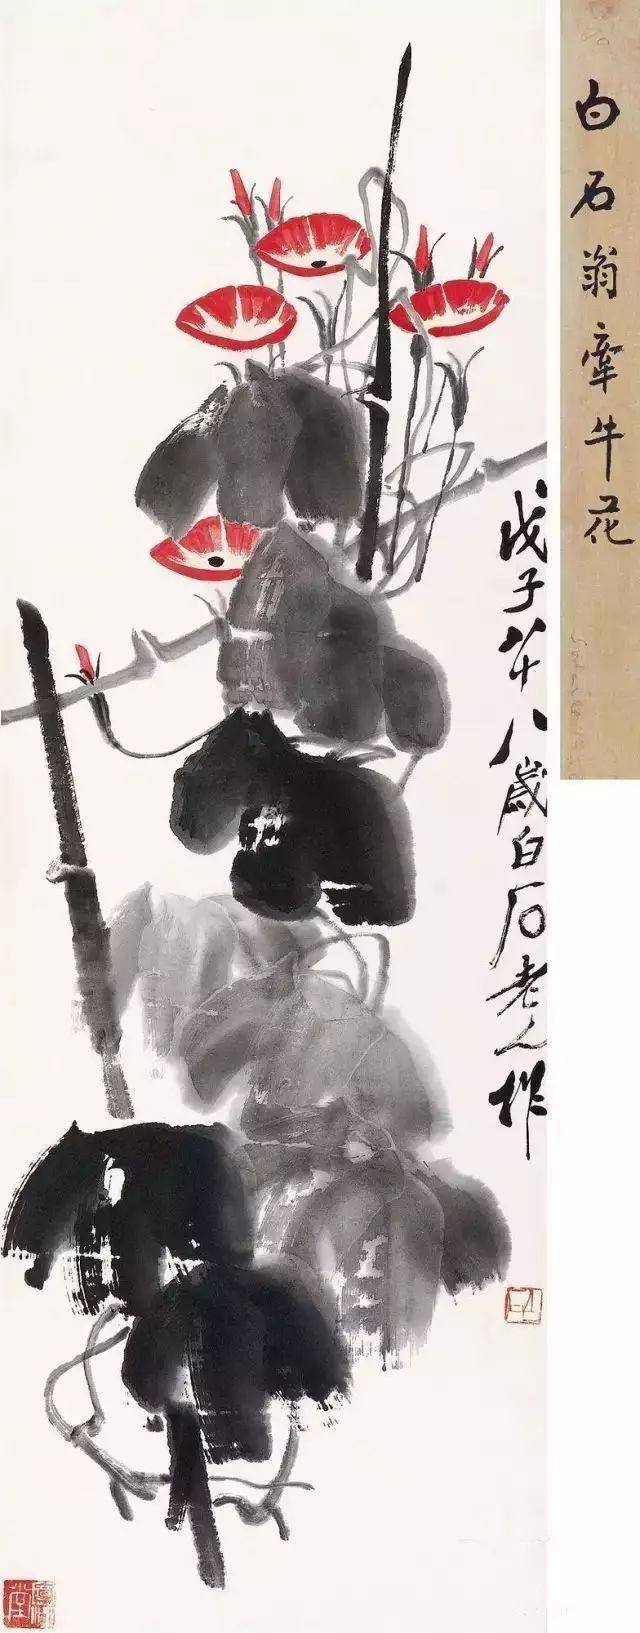 白石翁牽牛花
戊子八十八歲白石老人作